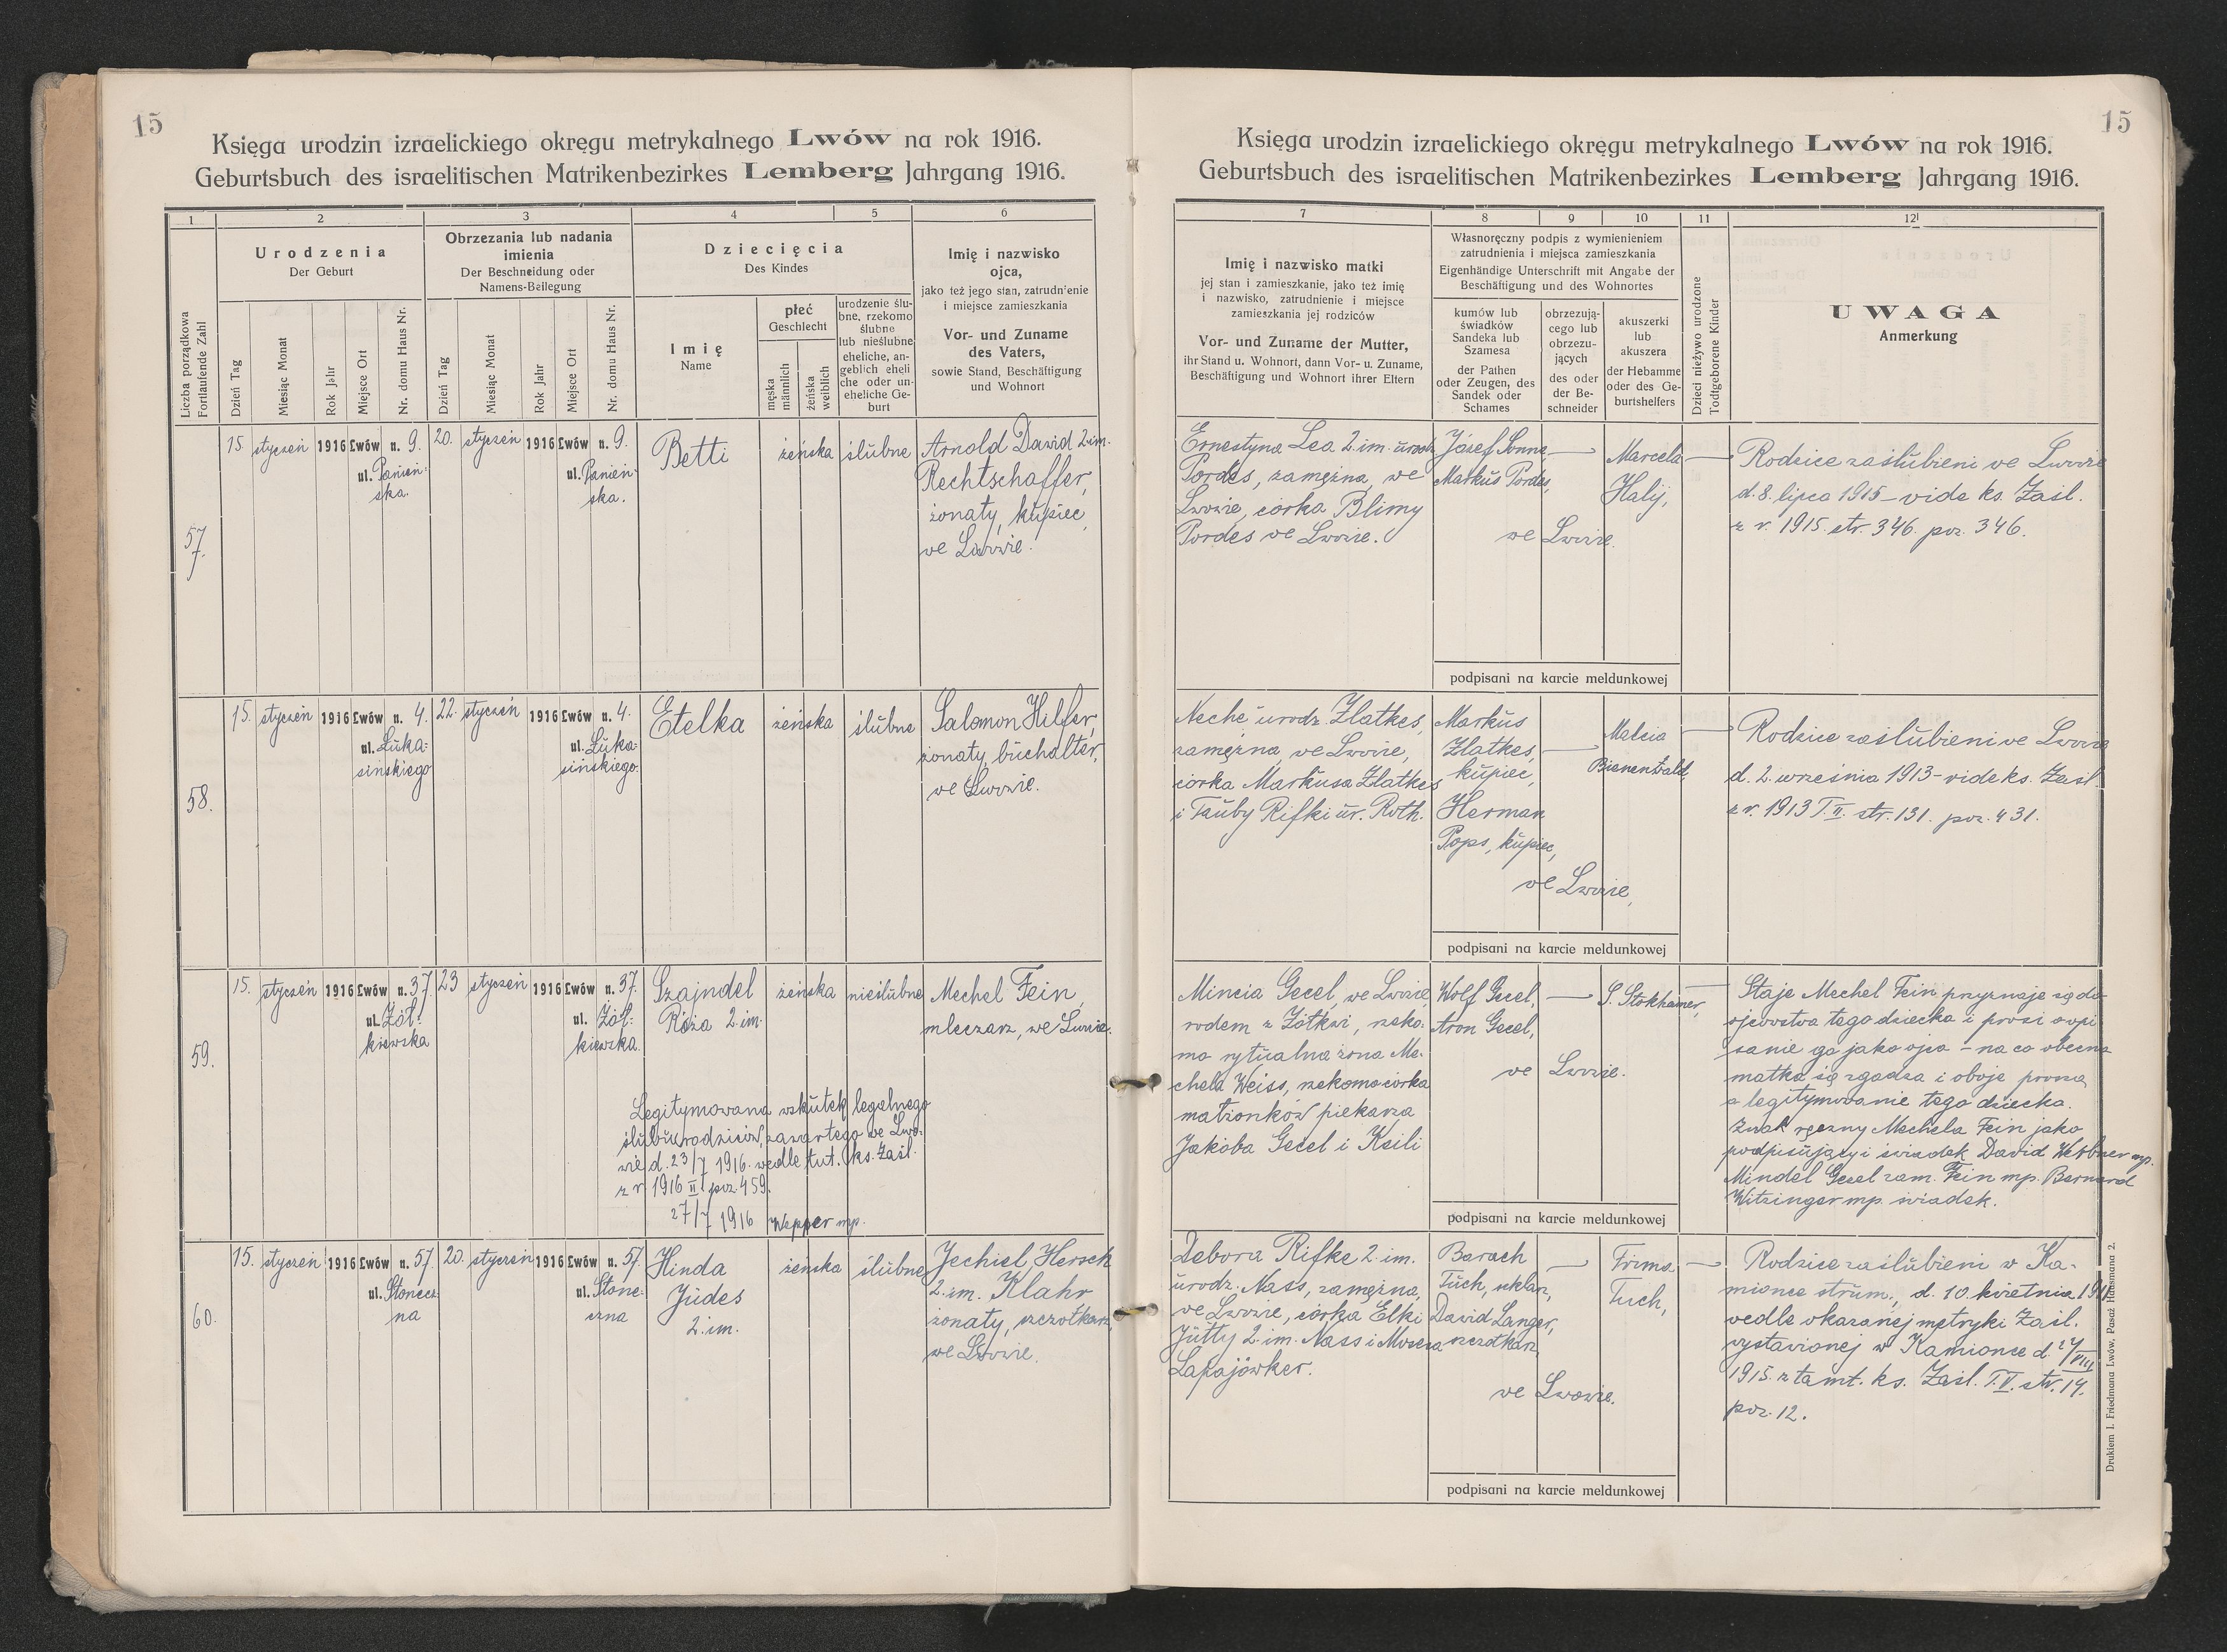 15
Księga urodzin izraelickiego okręgu metrykalnego Lwów na rok 1916.
Geburtsbuch des israelitischen Matrikenbezirkes Lemberg Jahrgang 1916.
1
2
3
4
5
6
Liczba porządkowa
Fortlaufende Zahl
Urodzenia
Der Geburt
Dzień Tag
Miesiąc Monat
Rok Jahr
Miejsce Ort
Nr. domu Haus Nr.
Obrzezania lub nadania
imienia
Der Beschneidung oder
Namens-Beilegung
Dzień Tag
Miesiąc Monat
Rok Jahr
Miejsce Ort
Nr. domu Haus Nr.
Dziecięcia
Des Kindes
Imię
Name
płeć
Geschlecht
męska
männlich
żeńska
weiblich
urodzenie ślu-
bne, rzekomo
ślubne
lub nieślubne
eheliche, an-
geblich eheli
che oder un-
eheliche Ge-
burt
Imię i nazwisko
ojca,
jako też jego stan, zatrudnienie
i miejsce zamieszkania
Vor- und Zuname
des Vaters,
sowie Stand, Beschäftigung
und Wohnort
57.
15. styczeń 1916 Lwów n. 9.
ul. Panień-
ska.
20. styczeń 1916 Lwów n. 9.
ul. Panień-
ska.
Betti
żeńska
ślubne
Arnold Dawid 2 im.
Rechtschaffer,
żonaty, kupiec,
we Lwowie.
58.
15. styczeń 1916 Lwów n. 4.
ul. Łuka-
sińskiego
22. styczeń 1916 Lwów n. 4.
ul. Łuka-
sińskiego.
Etelka
żeńska
ślubne
Salomon Hilfer,
żonaty, buchalter,
we Lwowie.
59.
15. styczeń 1916 Lwów n. 37.
ul. Żół-
kiewska
23 styczeń 1916 Lwów n. 37.
ul. Żół-
kiewska.
Szajndel
Róża 2 im.
żeńska
nieślubne
Mechel Fein,
mleczarz, we Lwowie.
Legitymowana wskutek legalnego
ślubu rodziców, zawartego we Lwo-
wie d. 23/7 1916. wedle tut. ks. Zaśl.
z r. 1916 II poz. 459.
27/7 1916 Wepper mp.
60.
15. styczeń 1916 Lwów n. 57.
ul. Słonecz-
na
20. styczeń 1916 Lwów n. 57.
ul. Słone-
czna
Hinda
Judes
2. im.
żeńska
ślubne
Jechiel, Hersch
2. im. Klahr
żonaty, szczotkarz,
we Lwowie.
15
Księga urodzin izraelickiego okręgu metrykalnego Lwów na rok 1916.
Geburtsbuch des israelitischen Matrikenbezirkes Lemberg Jahrgang 1916.
7
8
9
10
11
12
Imię i nazwisko matki
jej stan i zamieszkanie, jako też imię
i nazwisko, zatrudnienie i miejsce
zamieszkania jej rodziców
Vor- und Zuname der Mutter,
ihr Stand u. Wohnort, dann Vor- u. Zuname,
Beschäftigung und Wohnort ihrer Eltern
Własnoręczny podpis z wymienieniem
zatrudnienia i miejsca zamieszkania
Eigenhändige Unterschrift mit Angabe der
Beschäftigung und des Wohnortes
kumów lub
świadków
Sandeka lub
Szamesa
der Pathen
oder Zeugen, des
Sandek oder
Schames
obrzezują-
cego lub
obrzezu-
jących
des oder
der Be-
schneider
akuszerki
lub
akuszera
der Hebamme
oder des Ge-
burtshelfers
Dzieci nieżywo urodzone
Todtgeborene Kinder
UWAGA
Anmerkung
Ernestyna Lea 2. im. urodz.
Pordes, zamężna, we
Lwowie, córka Blimy
Pordes we Lwowie.
Józef Sonne,
Markus Pordes,
we Lwowie.
Marcela
Halij,
Rodzice zaślubieni we Lwowie
d. 8. lipca 1915 - vide ks. Zaśl.
z r. 1915. str. 346. poz. 346.
podpisani na karcie meldunkowej
Neche urodz. Zlatkes,
zamężna, we Lwowie,
córka Markusa Zlatkes
i Tauby Rifki ur. Roth.
Markus
Zlatkes,
kupiec,
Herman
Pops, kupiec,
we Lwowie,
Malcia
Bienenwald,
Rodzice zaślubieni we Lwowie
d. 2. września 1913 - vide ks. Zaśl.
z r. 1913 T. II. str. 131. poz. 431.
podpisani na karcie meldunkowej
Mincia Gecel, we Lwowie,
rodem z Żółkwi, rzeko-
mo rytualna żona Me-
chela Weiss, rzekomo córka
małżonków piekarza
Jakóba Gecel i Keili
Wolf Gecel,
Aron Gecel,
we Lwowie.
S. Stokhamer,
Staje Mechel Fein przyznaje się do
ojcowstwa tego dziecka i prosi o wpi-
sanie go jako ojca - na co obecna
matka się zgadza i oboje proszą
o legitymowanie tego dziecka.
Znak ręczny Mechela Fein jako
podpisujący i świadek Dawid Webner mp.
Mindel Gecel zam. Fein mp. Bernard
Witzinger mp. świadek.
podpisani na karcie meldunkowej
Debora Rifke 2. im.
urodz. Nass, zamężna,
we Lwowie, córka Elki
Jutty 2. im. Nass i Mosesa
Łapajówker.
Barach
Tuch, szklarz,
Dawid Langer,
szczotkarz,
we Lwowie.
Frima
Tuch,
Rodzice zaślubieni w Ka-
mionce strum., d. 10. kwietnia
wedle okazanej metryki Zaśl.
wystawionej w Kamionce d. 27/VIII
1915. z tamt. ks. Zaśl. T. II. str. 14.
poz. 12.
podpisani na karcie meldunkowej
Drukiem I. Friedmana Lwów, Pasaż Hausmana 2.